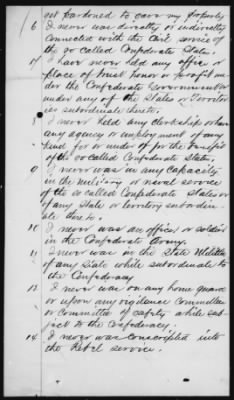 not pardoned to save my property
6 I never was directly or indirectly
connected with the Civil service of
the so called Confederate States.
7 I have never held any office or
place of trust honor or profit un
der the Confederate Government or
under any of the States or Territor
ies subordinate thereto.
8 I never held any clerkship or have
any agency or employment of any
kind for or under of for the benefit
of the so called Confederate States.
9 I never was in any capacity
in the military or naval service
of the so called Confederate States or
of any State or Territory subordin
ate thereto.
10 I never was an officer or soldier
in the Confederate Army.
11 I never was in the State Militia
of any State while subordinate to
the Confederacy.
12 I never was on any home guard
or upon any vigilance Committee
or Committee of safety while sub-
ject to the Confederacy.
14 I never was conscripted into
the Rebel service.